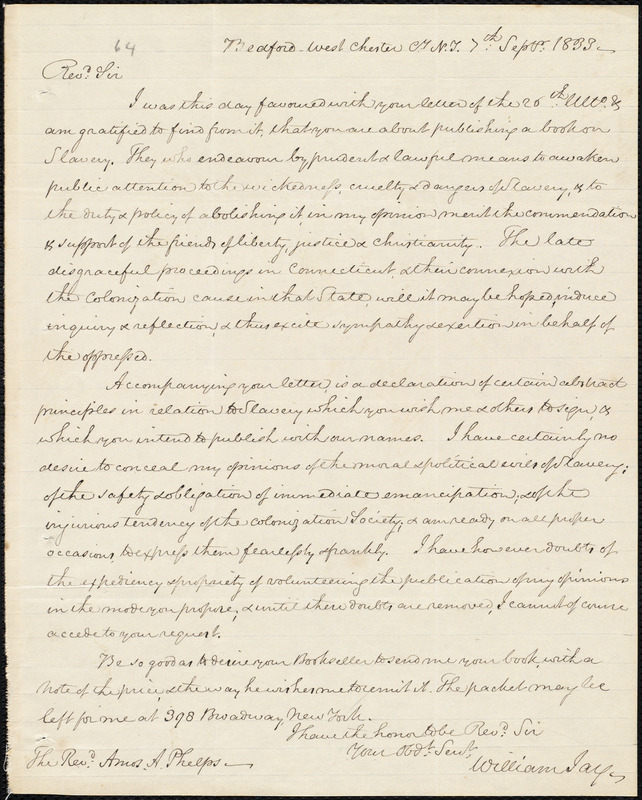 64
Bedford - West Chester Cy N.Y. 7th Septr. 1833 -
Revd. Sir
I was this day favoured with your letter of the 26th Ulto. &
am gratified to find from it, that you are about publishing a book on
Slavery. They who endeavour by prudent & lawful means to awaken
public attention to the wickedness, cruelty & dangers of Slavery, & to
the duty & policy of abolishing it, in my opinion merit the commendation
& support of the friends of liberty, justice & Christianity. The late
disgraceful proceedings in Connecticut & their connexion with
the Colonization cause in that State, will it may be hoped, induce
inquiry & reflection, & thus excite sympathy & exertion in behalf of
the oppressed.
Accompanying your letter, is a declaration of certain abstract
principles in relation to Slavery which you wish me & others to sign, &
which you intend to publish with our names. I have certainly no
desire to conceal my opinions of the moral & political evils of Slavery;
of the safety & obligation of immediate emancipation; & of the
injurious tendency of the Colonization Society, & am ready on all proper
occasions, to express them fearlessly & frankly. I have however doubts of
the expediency & propriety of volunteering the publication of my opinions
in the mode you propose, & until these doubts are removed, I cannot of course
accede to your request.
Be so good as to desire your Bookseller to send me your book, with a
note of the price, & the way he wishes me to remit it. The packet may be
left for me at 398 Broadway, New York.
I have the honor to be Revd. Sir
Your Obdt. Servt.
William Jay
The Revd. Amos. A. Phelps -